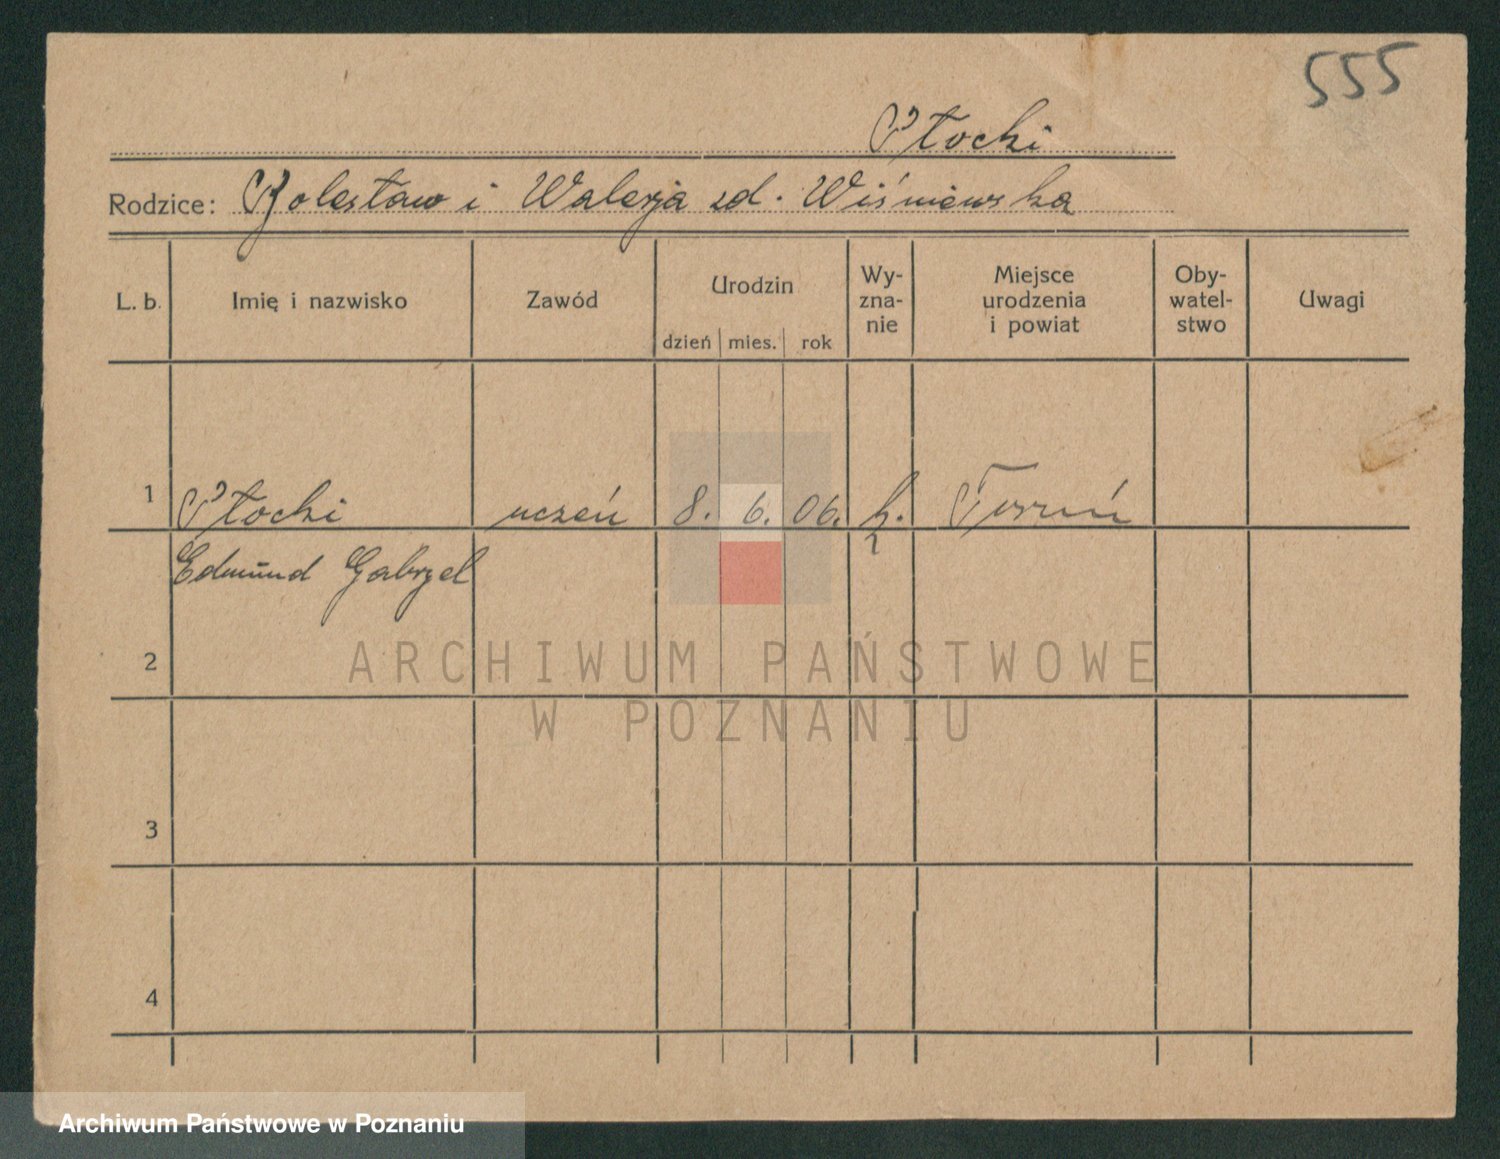 555
Płocki
Rodzice: Bolesław i Walerja zd. Wiśniewska
L. b. Imię i nazwisko Zawód Urodzin dzień mies. rok Wy-zna-nie Miejsce urodzenia i powiat Oby-watel-stwo Uwagi
1 Płocki uczeń 8. 6. 06. k. Toruń
Edmund Gabrjel
2
ARCHIWUM PAŃSTWOWE
W POZNANIU
3
4
Archiwum Państwowe w Poznaniu